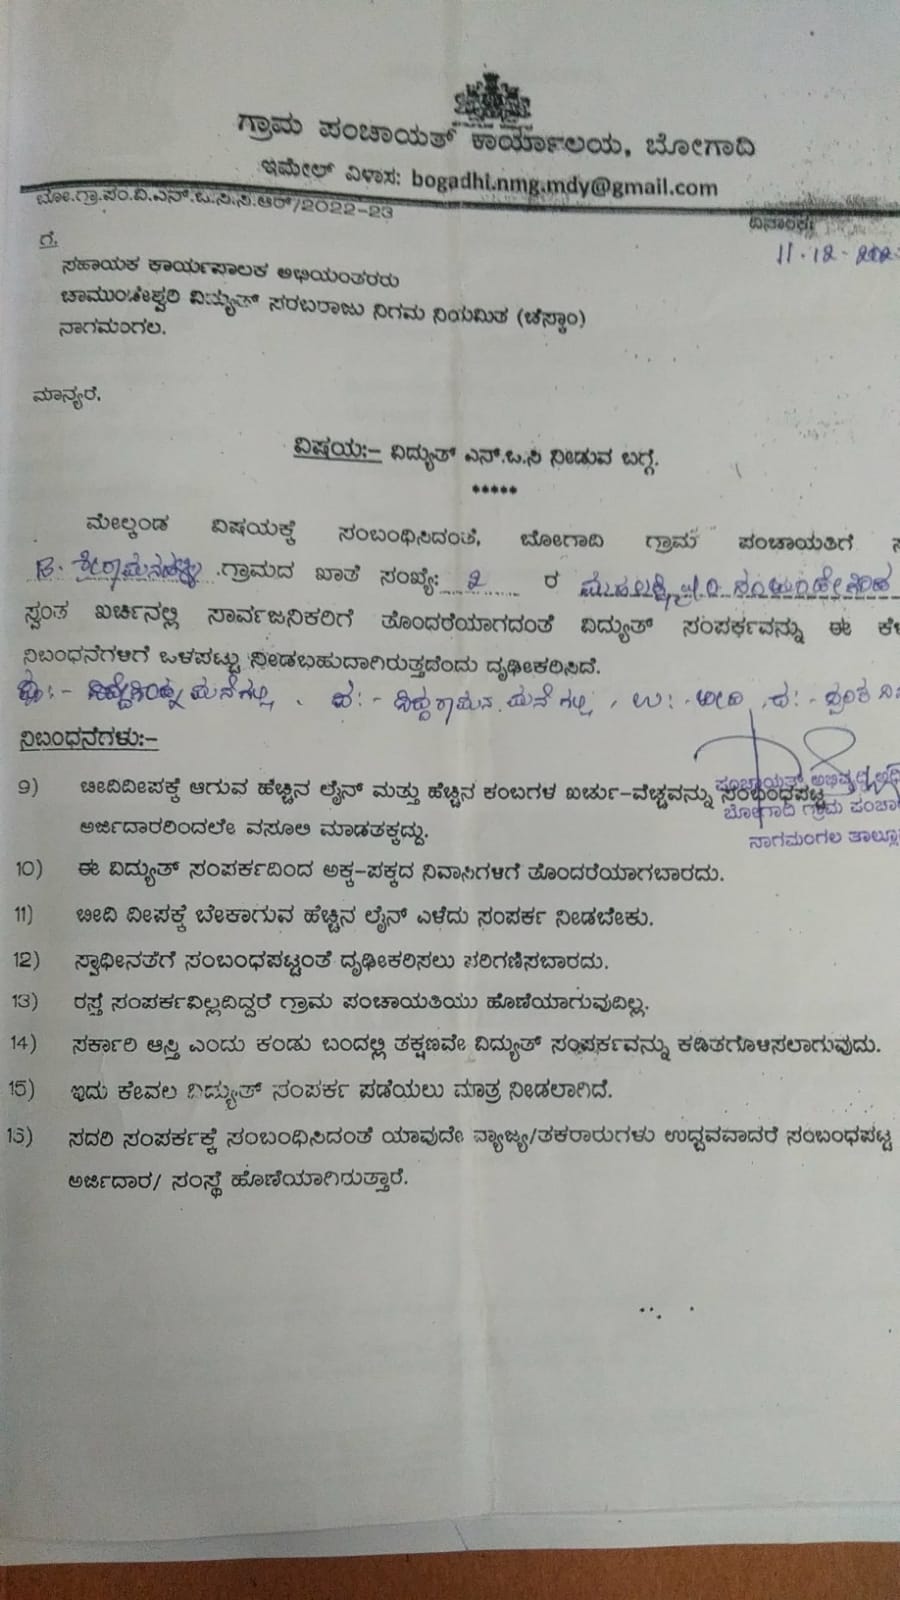 ಗ್ರಾಮ ಪಂಚಾಯತ್ ಕಾರ್ಯಾಲಯ, ಬೋಗಾದಿ
ಇಮೇಲ್ ವಿಳಾಸ: bogadhi.nmg.mdy@gmail.com
ಬೋ.ಗ್ರಾ.ಪಂ.ವಿ.ಎನ್.ಒ.ಸಿ.ಸಿ.ಆರ್/2022-23
ದಿನಾಂಕ:
11.12-202
ಗೆ,
ಸಹಾಯಕ ಕಾರ್ಯಪಾಲಕ ಅಭಿಯಂತರರು
ಚಾಮುಂಡೇಶ್ವರಿ ವಿದ್ಯುತ್ ಸರಬರಾಜು ನಿಗಮ ನಿಯಮಿತ (ಚೆಸ್ಕಾಂ)
ನಾಗಮಂಗಲ.
ಮಾನ್ಯರೆ,
ವಿಷಯ:- ವಿದ್ಯುತ್ ಎನ್.ಒ.ಸಿ ನೀಡುವ ಬಗ್ಗೆ.
*****
ಮೇಲ್ಕಂಡ ವಿಷಯಕ್ಕೆ ಸಂಬಂಧಿಸಿದಂತೆ, ಬೋಗಾದಿ ಗ್ರಾಮ ಪಂಚಾಯತಿಗೆ
ಗ್ರಾಮದ ಖಾತೆ ಸಂಖ್ಯೆ: ರ
ಸ್ವಂತ ಖರ್ಚಿನಲ್ಲಿ ಸಾರ್ವಜನಿಕರಿಗೆ ತೊಂದರೆಯಾಗದಂತೆ ವಿದ್ಯುತ್ ಸಂಪರ್ಕವನ್ನು ಈ
ನಿಬಂಧನೆಗಳಿಗೆ ಒಳಪಟ್ಟು ನೀಡಬಹುದಾಗಿರುತ್ತದೆಂದು ದೃಢೀಕರಿಸಿದೆ.
ನಿಬಂಧನೆಗಳು:-
9) ಬೀದಿದೀಪಕ್ಕೆ ಆಗುವ ಹೆಚ್ಚಿನ ಲೈನ್ ಮತ್ತು ಹೆಚ್ಚಿನ ಕಂಬಗಳ ಖರ್ಚು-ವೆಚ್ಚವನ್ನು ಸಂಬಂಧಪಟ್ಟ
ಅರ್ಜಿದಾರರಿಂದಲೇ ವಸೂಲಿ ಮಾಡತಕ್ಕದ್ದು.
ಪಂಚಾಯತ್ ಅಭಿವೃದ್ಧಿ
ಬೋಗಾದಿ ಗ್ರಾಮ
ನಾಗಮಂಗಲ
10) ಈ ವಿದ್ಯುತ್ ಸಂಪರ್ಕದಿಂದ ಅಕ್ಕ-ಪಕ್ಕದ ನಿವಾಸಿಗಳಿಗೆ ತೊಂದರೆಯಾಗಬಾರದು.
11) ಬೀದಿ ದೀಪಕ್ಕೆ ಬೇಕಾಗುವ ಹೆಚ್ಚಿನ ಲೈನ್ ಎಳೆದು ಸಂಪರ್ಕ ನೀಡಬೇಕು.
12) ಸ್ವಾಧೀನತೆಗೆ ಸಂಬಂಧಪಟ್ಟಂತೆ ದೃಢೀಕರಿಸಲು ಪರಿಗಣಿಸಬಾರದು.
13) ರಸ್ತೆ ಸಂಪರ್ಕವಿಲ್ಲದಿದ್ದರೆ ಗ್ರಾಮ ಪಂಚಾಯತಿಯು ಹೊಣೆಯಾಗುವುದಿಲ್ಲ.
14) ಸರ್ಕಾರಿ ಆಸ್ತಿ ಎಂದು ಕಂಡು ಬಂದಲ್ಲಿ ತಕ್ಷಣವೇ ವಿದ್ಯುತ್ ಸಂಪರ್ಕವನ್ನು ಕಡಿತಗೊಳಿಸಲಾಗುವುದು.
15) ಇದು ಕೇವಲ ವಿದ್ಯುತ್ ಸಂಪರ್ಕ ಪಡೆಯಲು ಮಾತ್ರ ನೀಡಲಾಗಿದೆ.
16) ಸದರಿ ಸಂಪರ್ಕಕ್ಕೆ ಸಂಬಂಧಿಸಿದಂತೆ ಯಾವುದೇ ವ್ಯಾಜ್ಯ/ತಕರಾರುಗಳು ಉದ್ಭವವಾದರೆ ಸಂಬಂಧಪಟ್ಟ
ಅರ್ಜಿದಾರ/ ಸಂಸ್ಥೆ ಹೊಣೆಯಾಗಿರುತ್ತಾರೆ.